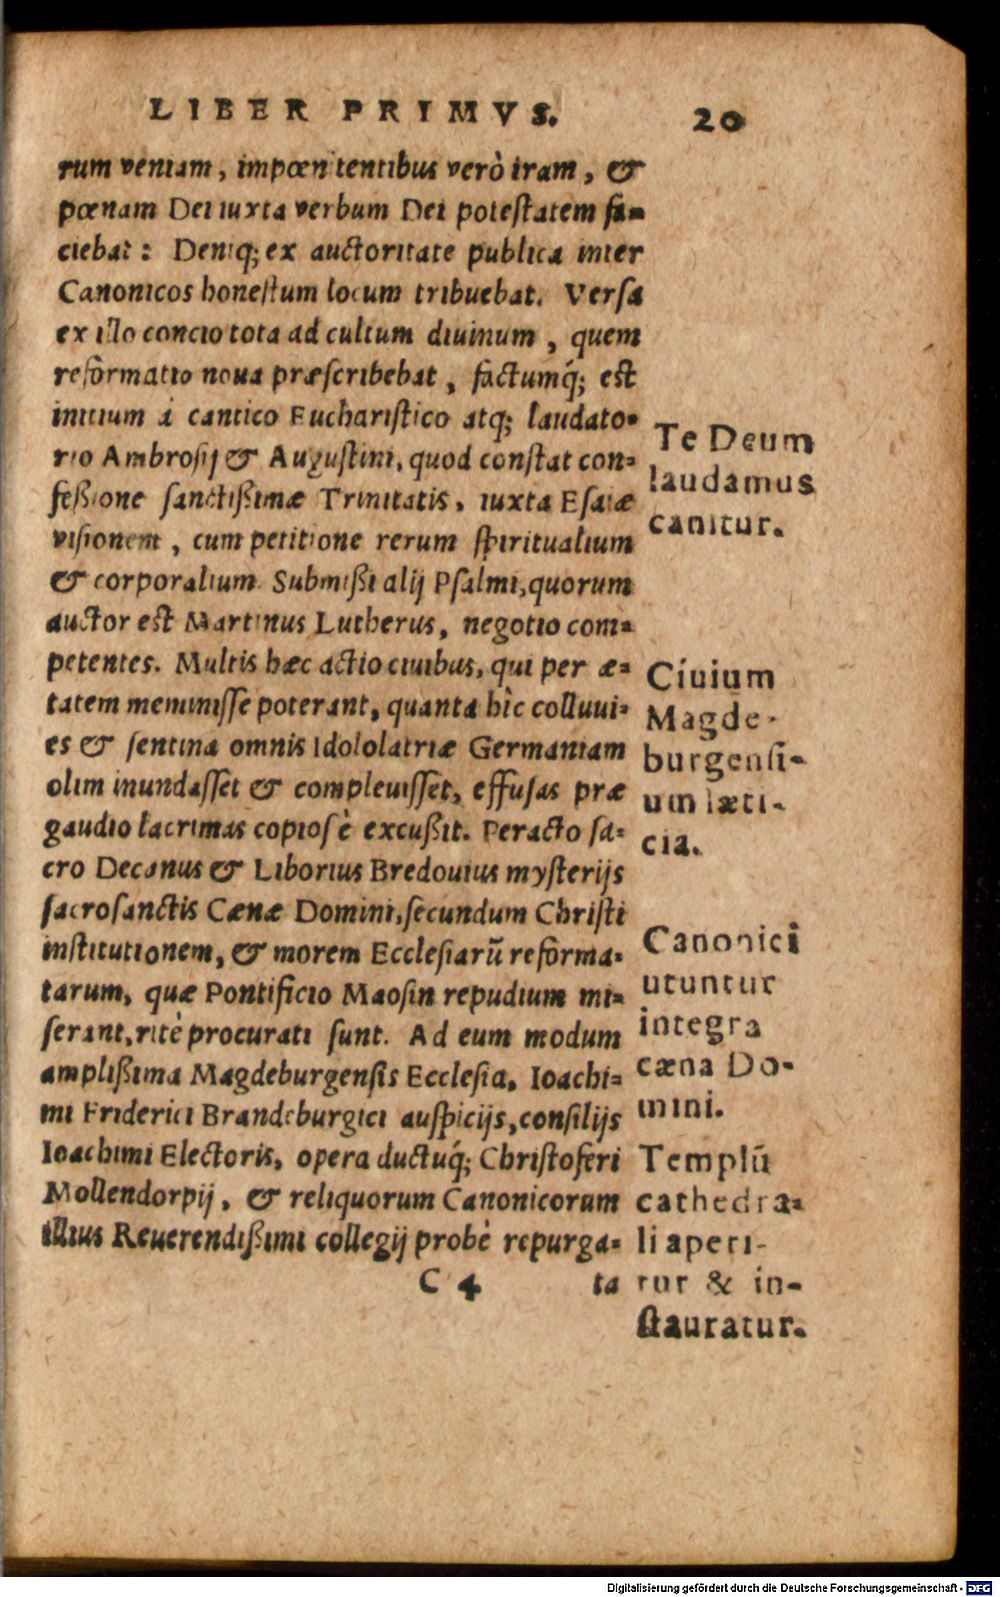 LIBER PRIMVS. 20
rum veniam, impœnitentibus verò iram, &
pœnam Dei iuxta verbum Dei potestatem fa-
ciebat: Deniq; ex auctoritate publica inter
Canonicos honestum locum tribuebat. Versa
ex illo concio tota ad cultum diuinum, quem
reformatio noua præscribebat, factumq́; est
initium à cantico Eucharistico atq; laudato-
rio Ambrosij & Augustini, quod constat con-
feßione sanctißimæ Trinitatis, iuxta Esaiæ
visionem, cum petitione rerum spiritualium
& corporalium. Submißi alij Psalmi, quorum
auctor est Martinus Lutherus, negotio com-
petentes. Multis hæc actio ciuibus, qui per æ-
tatem meminisse poterant, quanta hîc colluui-
es & sentina omnis Idololatriæ Germaniam
olim inundasset & compleuisset, effusas præ
gaudio lacrimas copiosè excußit. Peracto sa-
cro Decanus & Liborius Bredouius mysterijs
sacrosanctis Cænæ Domini, secundum Christi
institutionem, & morem Ecclesiarū reforma-
tarum, quæ Pontificio Maosin repudium mi-
serant, ritè procurati sunt. Ad eum modum
amplißima Magdeburgensis Ecclesia, Ioachi-
mi Friderici Brandeburgici auspicijs, consilijs
Ioachimi Electoris, opera ductuq́; Christoferi
Mollendorpij, & reliquorum Canonicorum
illius Reuerendißimi collegij probè repurga-
C 4 ta
Te Deum
laudamus
canitur.
Ciuium
Magde-
burgensi-
um læti-
cia.
Canonici
utuntur
integra
cæna Do-
mini.
Templū
cathedra-
li aperi-
tur & in-
stauratur.
Digitalisierung gefördert durch die Deutsche Forschungsgemeinschaft - DFG